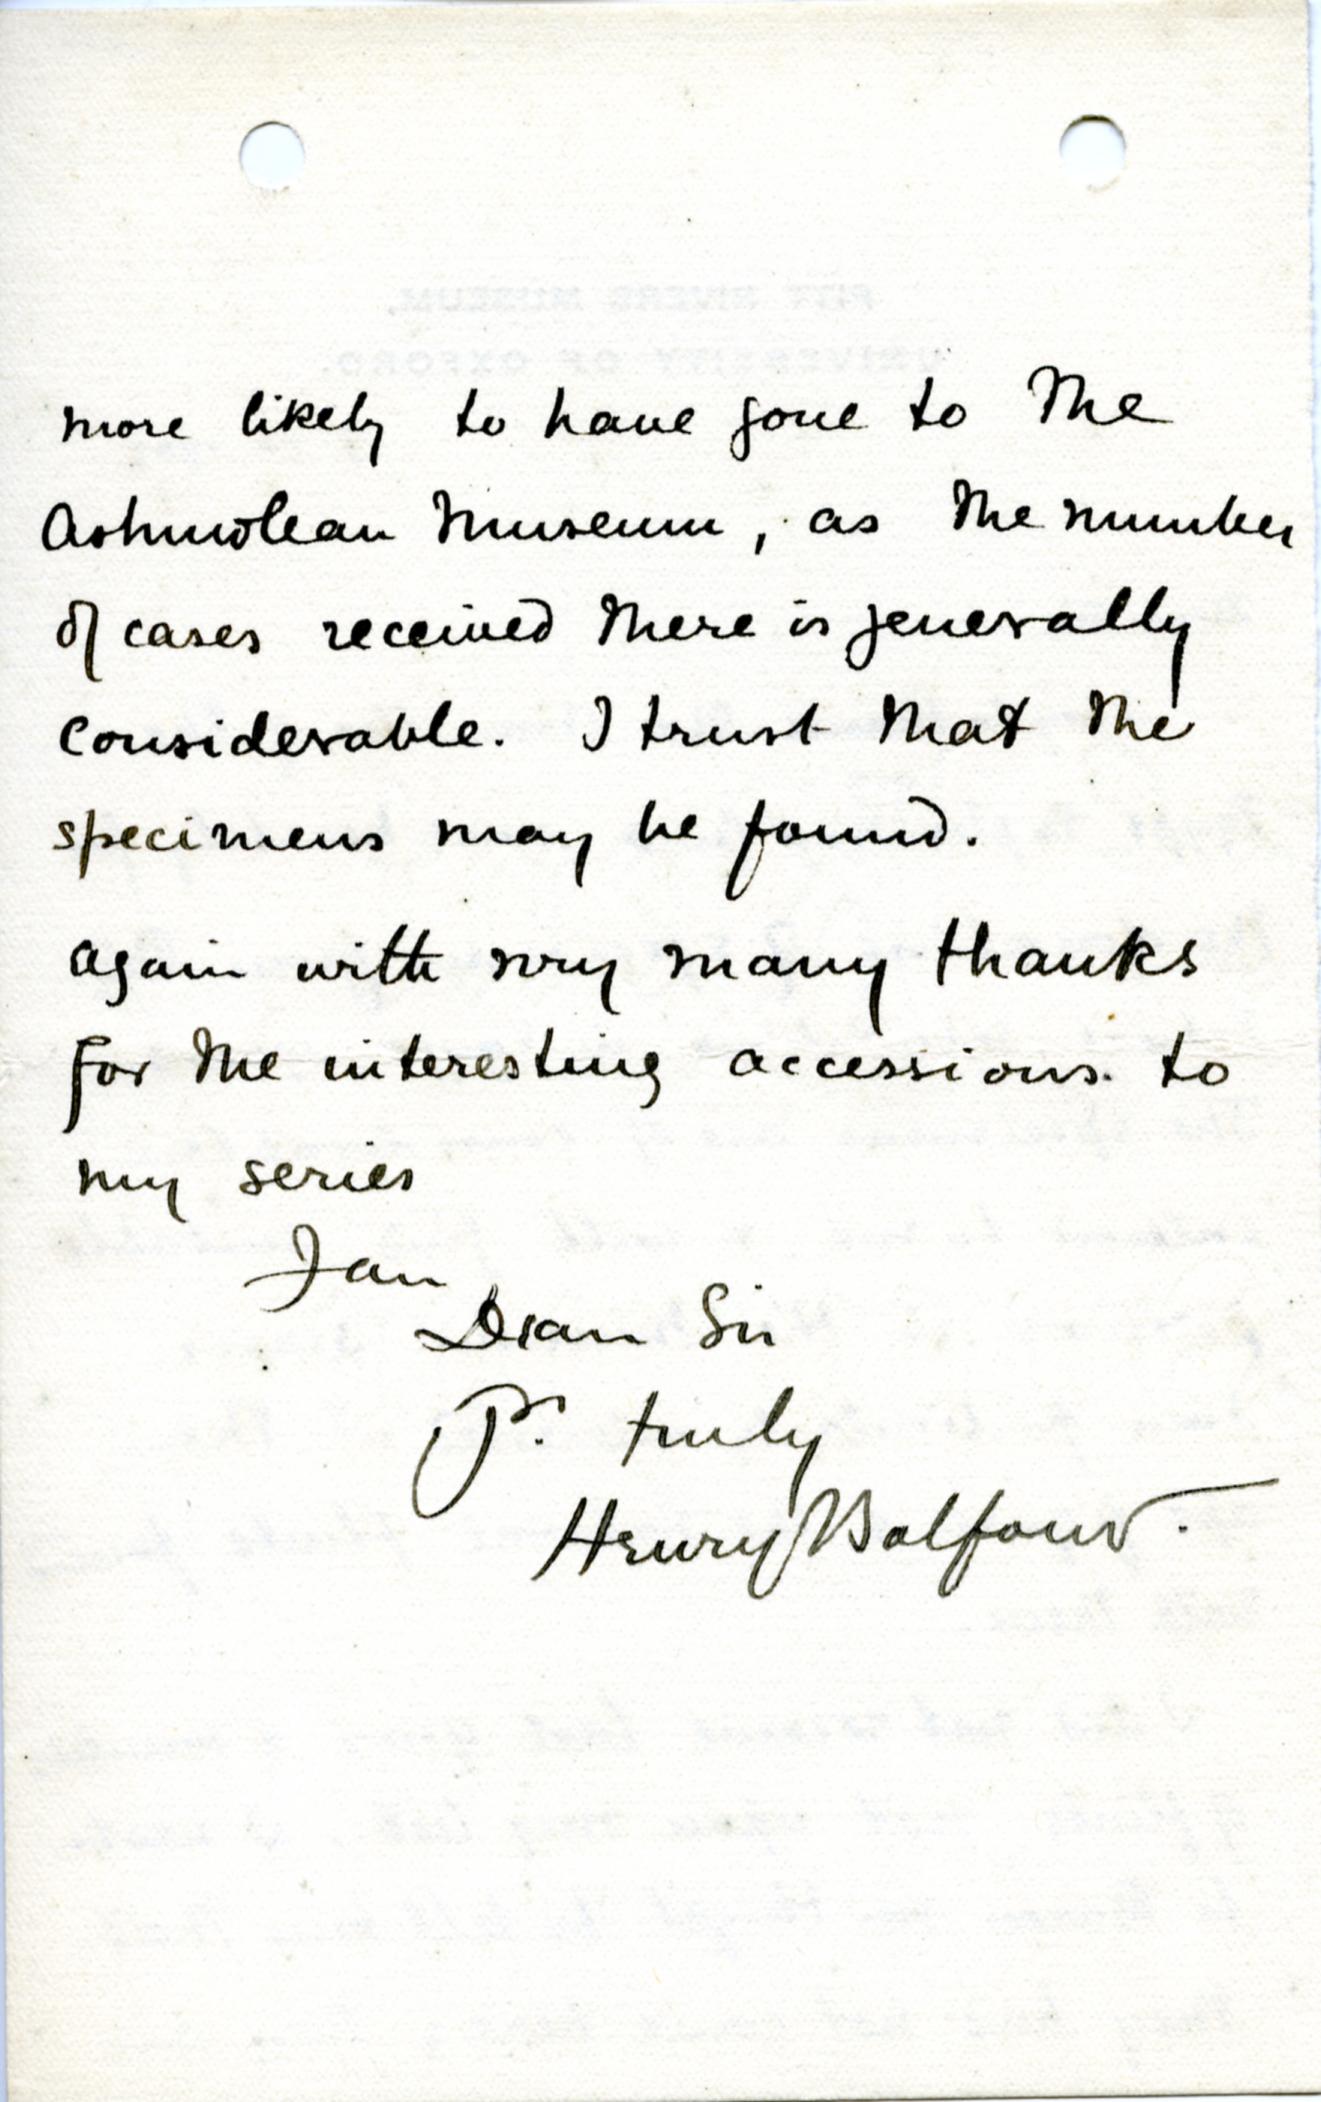 more likely to have gone to the
Ashmolean Museum, as the number
of cases received there is generally
considerable. I trust that the
specimens may be found.
Again with very many thanks
for the interesting accessions to
my series
I am
Dear Sir
Yrs. truly
Henry Balfour.
PITT RIVERS MUSEUM,
UNIVERSITY OF OXFORD.